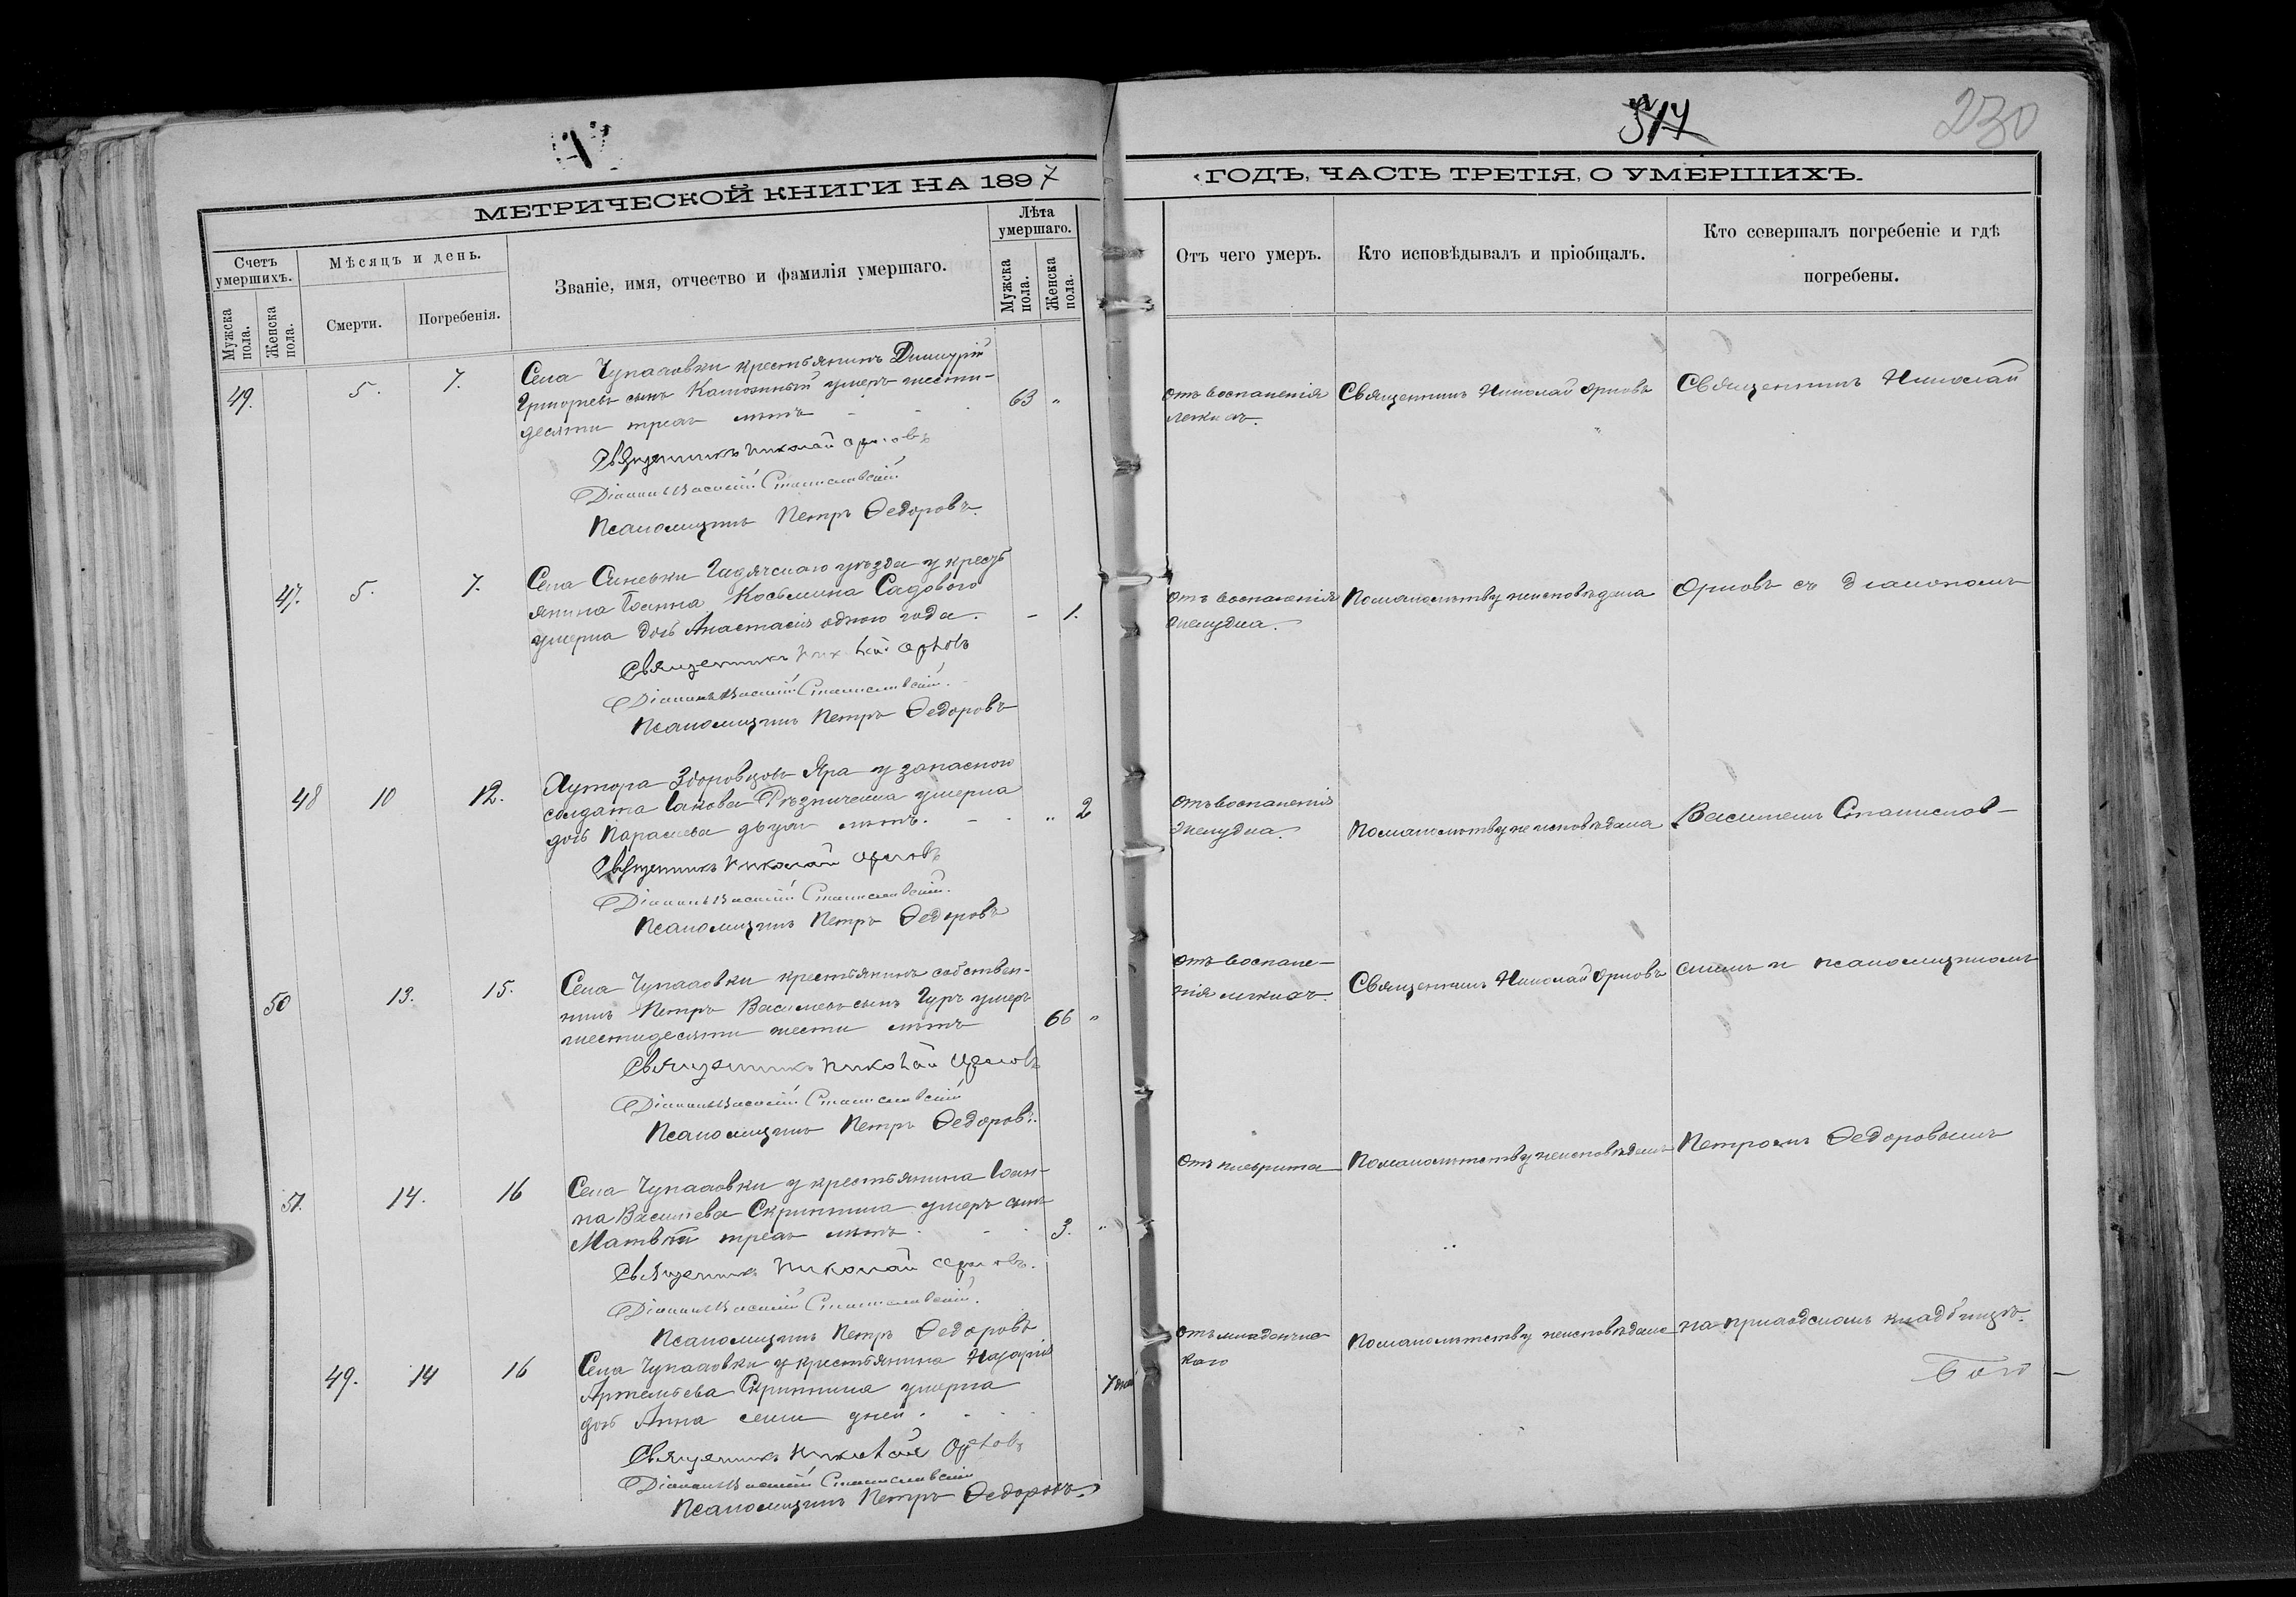 314
230
МЕТРИЧЕСКОЙ КНИГИ НА 1897
ГОДЪ, ЧАСТЬ ТРЕТІЯ, О УМЕРШИХЪ.
Счетъ умершихъ.
Мужска пола.
Женска пола.
Мѣсяцъ и день.
Смерти.
Погребенія.
Званіе, имя, отчество и фамилія умершаго.
Лѣта умершаго.
Мужска пола.
Женска пола.
Отъ чего умеръ.
Кто исповѣдывалъ и пріобщалъ.
Кто совершалъ погребеніе и гдѣ
погребены.
49. 5. 7. Села Чупаховки крестьянинъ Димитрій
Григорьевъ сынъ умеръ шести-
десяти трехъ лѣтъ 63 "
Священникъ Николай Орловъ
Діаконъ Василій Станиславскій
Псаломщикъ Петръ Ѳедоровъ
отъ воспаленія
легкихъ.
Священникъ Николай Орловъ
Священникъ Николай
47. 5. 7. Села Синевки Гадячскаго уѣзда у кресть
янина Іоанна Косьмина Садоваго
умерла дочь Анастасія одного года. - 1.
Священникъ Николай Орловъ
Діаконъ Василій Станиславскій
Псаломщикъ Петръ Ѳедоровъ
отъ воспаленія
желудка.
По малолѣтству неисповѣдана
Орловъ съ діакономъ
48 10 12. Хутора Здоровцовъ Яра у запаснаго
солдата Іакова Рѣзниченка умерла
дочь Параскева двухъ лѣтъ. " 2
Священникъ Николай Орловъ
Діаконъ Василій Станиславскій
Псаломщикъ Петръ Ѳедоровъ
отъ воспаленія
желудка.
По малолѣтству неисповѣдана
Василіемъ Станислав-
50 13. 15. Села Чупаховки крестьянинъ собствен-
никъ Петръ Васильевъ сынъ Гуръ умеръ
шестидесяти шести лѣтъ 66 "
Священникъ Николай Орловъ
Діаконъ Василій Станиславскій
Псаломщикъ Петръ Ѳедоровъ
отъ воспале-
нія легкихъ.
Священникъ Николай Орловъ
скимъ и псаломщикомъ
51. 14. 16 Села Чупаховки у крестьянина Іоан-
на Васильева Скрипника умеръ сынъ
Матвѣй трехъ лѣтъ. 3. "
Священникъ Николай Орловъ.
Діаконъ Василій Станиславскій.
Псаломщикъ Петръ Ѳедоровъ
отъ плеврита
По малолѣтству неисповѣданъ
Петромъ Ѳедоровымъ
49. 14 16 Села Чупаховки у крестьянина Назарія
Артемьева Скрипника умерла
дочь Анна семи дней. 7 дней
Священникъ Николай Орловъ
Діаконъ Василій Станиславскій
Псаломщикъ Петръ Ѳедоровъ.
отъ младенчес-
каго
По малолѣтству неисповѣдана
на приходскомъ кладбищѣ.